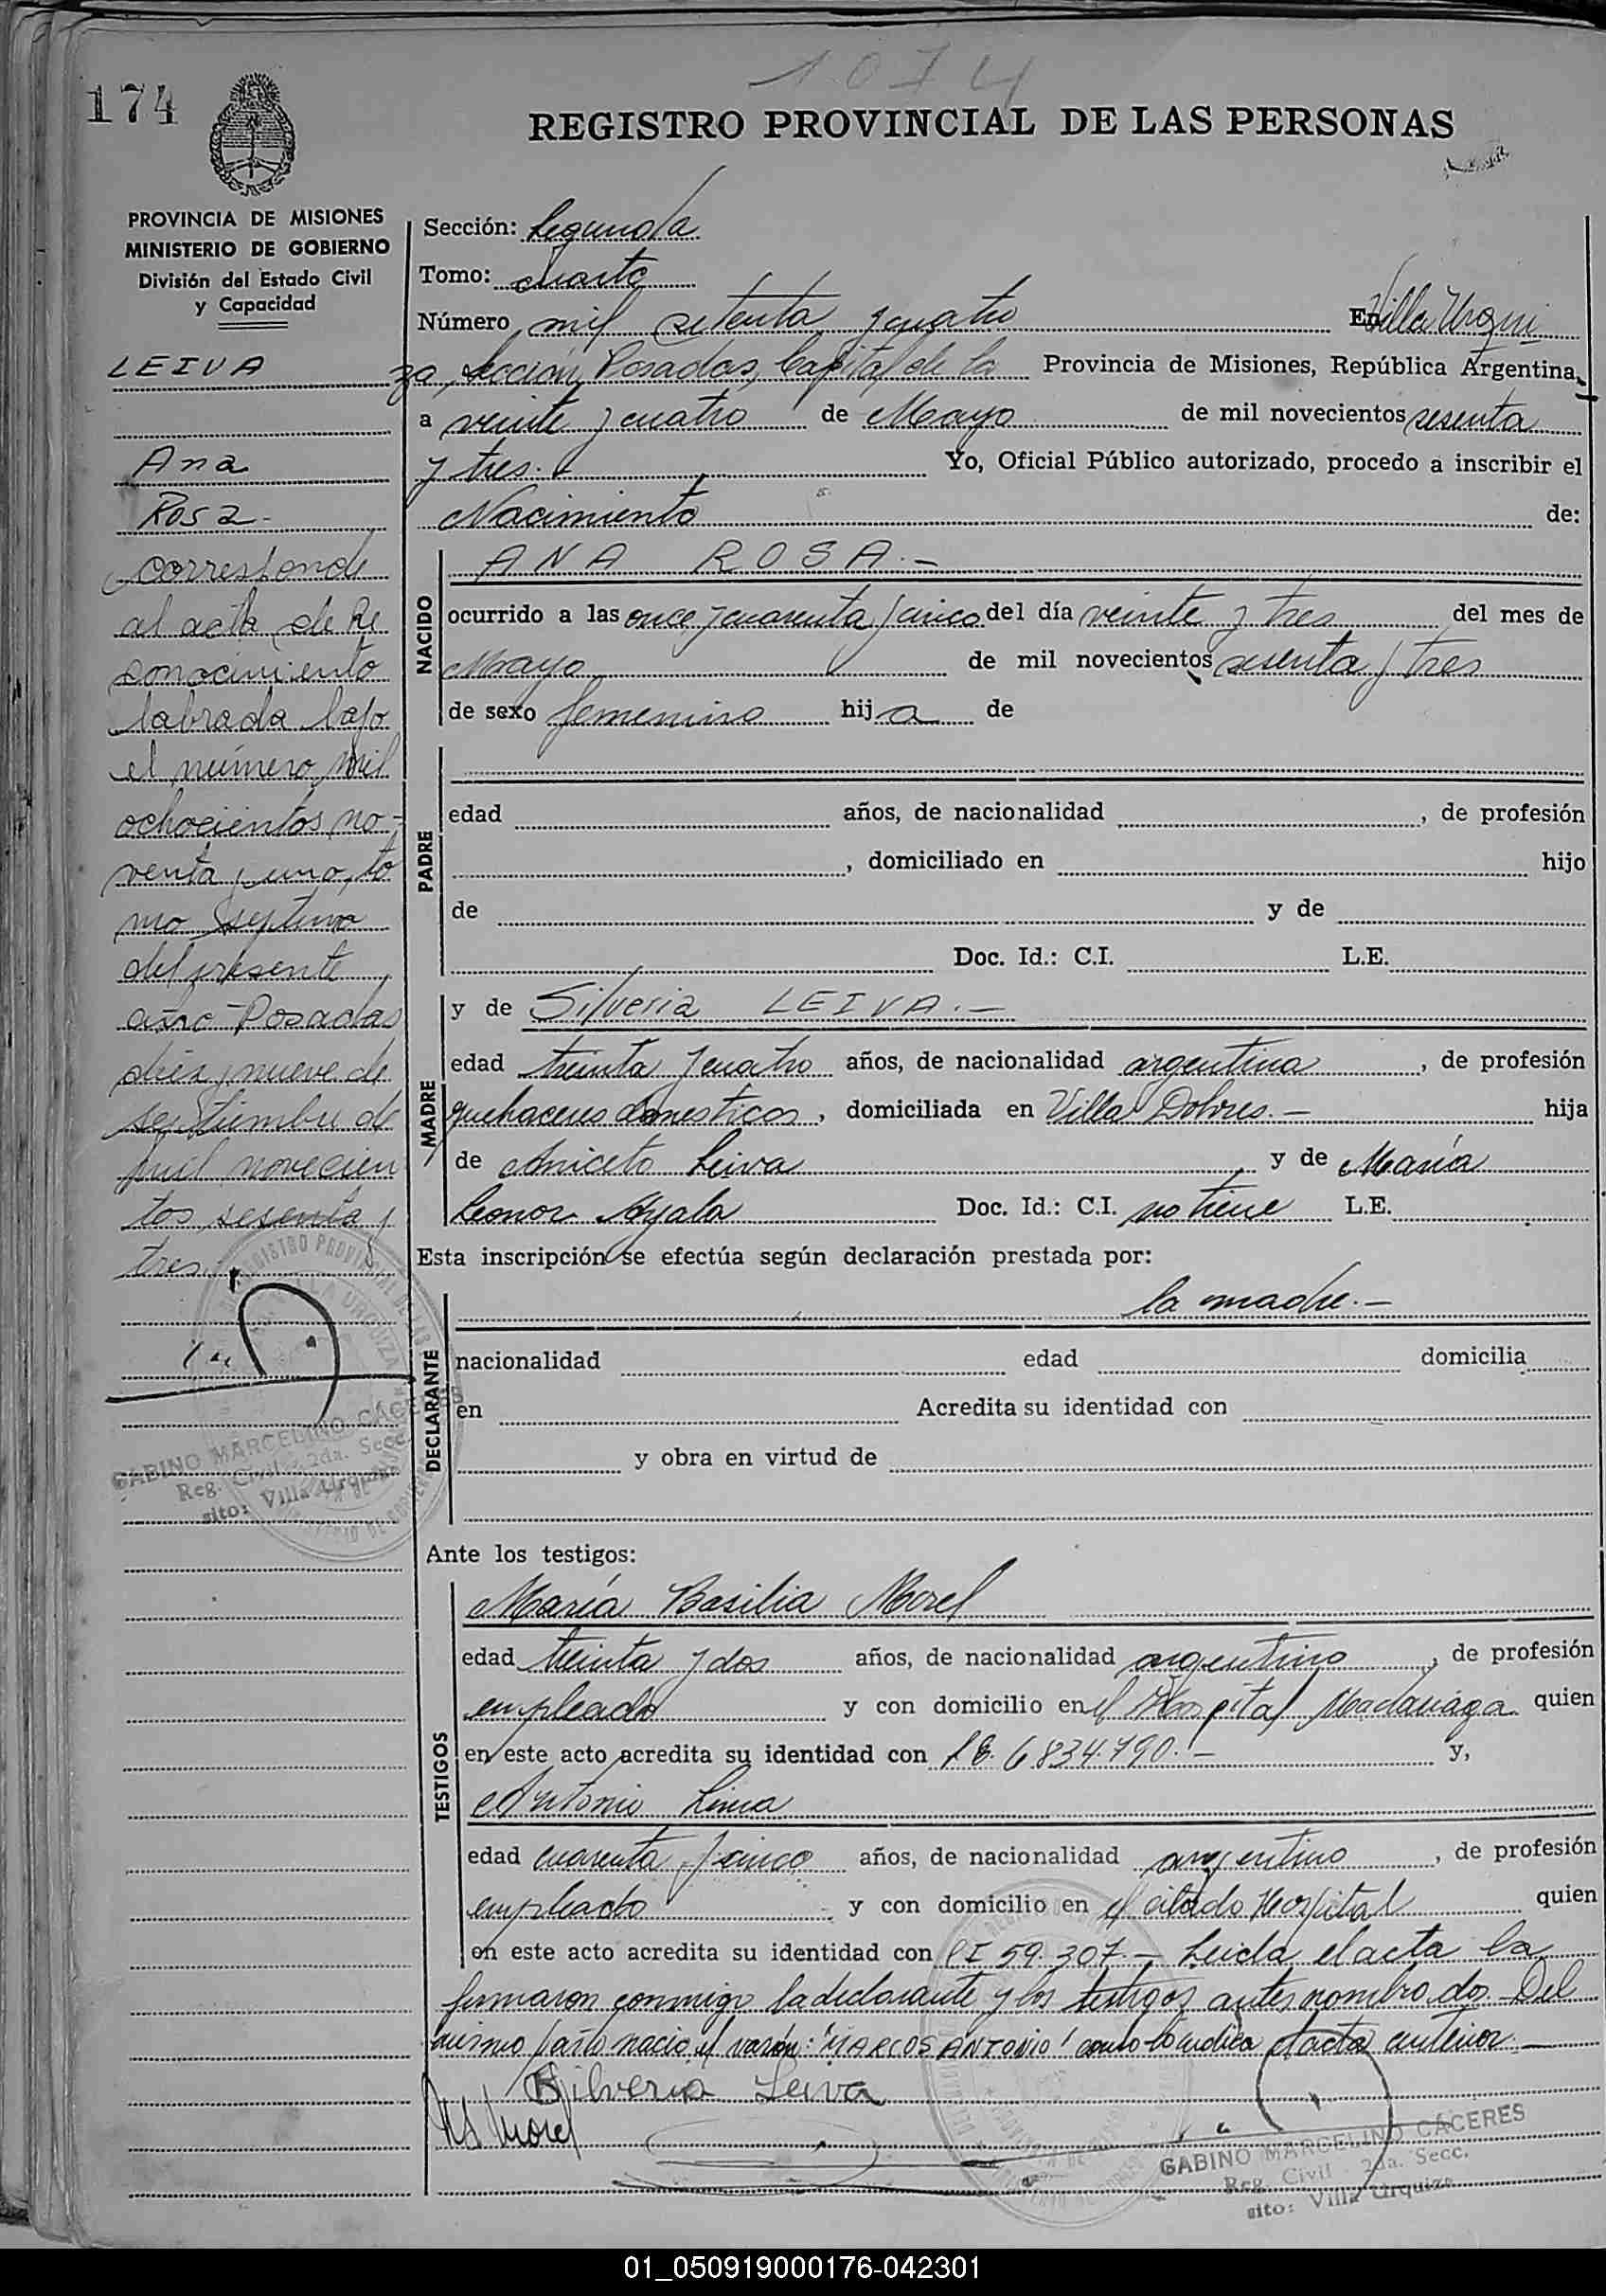 1074
174
REGISTRO PROVINCIAL DE LAS PERSONAS
PROVINCIA DE MISIONES
MINISTERIO DE GOBIERNO
División del Estado Civil
y Capacidad
LEIVA
Ana
Rosa.-
Corresponde
al acta de Re
conocimiento
labrada bajo
el número mil
ochocientos no-
venta y uno, to
mo septimo
del presente
año - Posadas
diez y nueve de
septiembre de
mil novecien
tos sesenta y
tres
GABINO MARCELINO CACERES
Reg. Civil - 2da. Secc.
sito: Villa Urquiza
Sección: Segunda
Tomo: cuarto
Número mil setenta y cuatro En Villa Urqui
za, Sección, Posadas, Capital de la Provincia de Misiones, República Argentina,
a veinte y cuatro de Mayo de mil novecientos sesenta
y tres. Yo, Oficial Público autorizado, procedo a inscribir el
Nacimiento de:
NACIDO
ANA ROSA.-
ocurrido a las once y cuarenta y cinco del día veinte y tres del mes de
Mayo de mil novecientos sesenta y tres
de sexo femenino hija de
PADRE
edad años, de nacionalidad , de profesión
, domiciliado en hijo
de y de
Doc. Id.: C.I. L.E.
MADRE
y de Silveria LEIVA.-
edad treinta y cuatro años, de nacionalidad argentina , de profesión
quehaceres domesticos, domiciliada en Villa Dolores.- hija
de Aniceto Leiva y de María
Leonor Ayala Doc. Id.: C.I. no tiene L.E.
Esta inscripción se efectúa según declaración prestada por:
DECLARANTE
la madre.-
nacionalidad edad domicilia
en Acredita su identidad con
y obra en virtud de
Ante los testigos:
TESTIGOS
María Basilia Morel
edad treinta y dos años, de nacionalidad argentino , de profesión
empleado y con domicilio en el Hospital Madariaga quien
en este acto acredita su identidad con 6834.790.- y,
Antonio
edad cuarenta y cinco años, de nacionalidad argentino , de profesión
empleado y con domicilio en el citado Hospital quien
en este acto acredita su identidad con CI 59.307.- Leida el acta la
firmaron conmigo la declarante y los testigos antes nombrados. Del
mismo parto nació el varón: "MARCOS ANTONIO" como lo indica el acta anterior.-
Silveria Leiva
Morel
GABINO MARCELINO CACERES
Reg. Civil 2da. Secc.
sito: Villa Urquiza
01_050919000176-042301